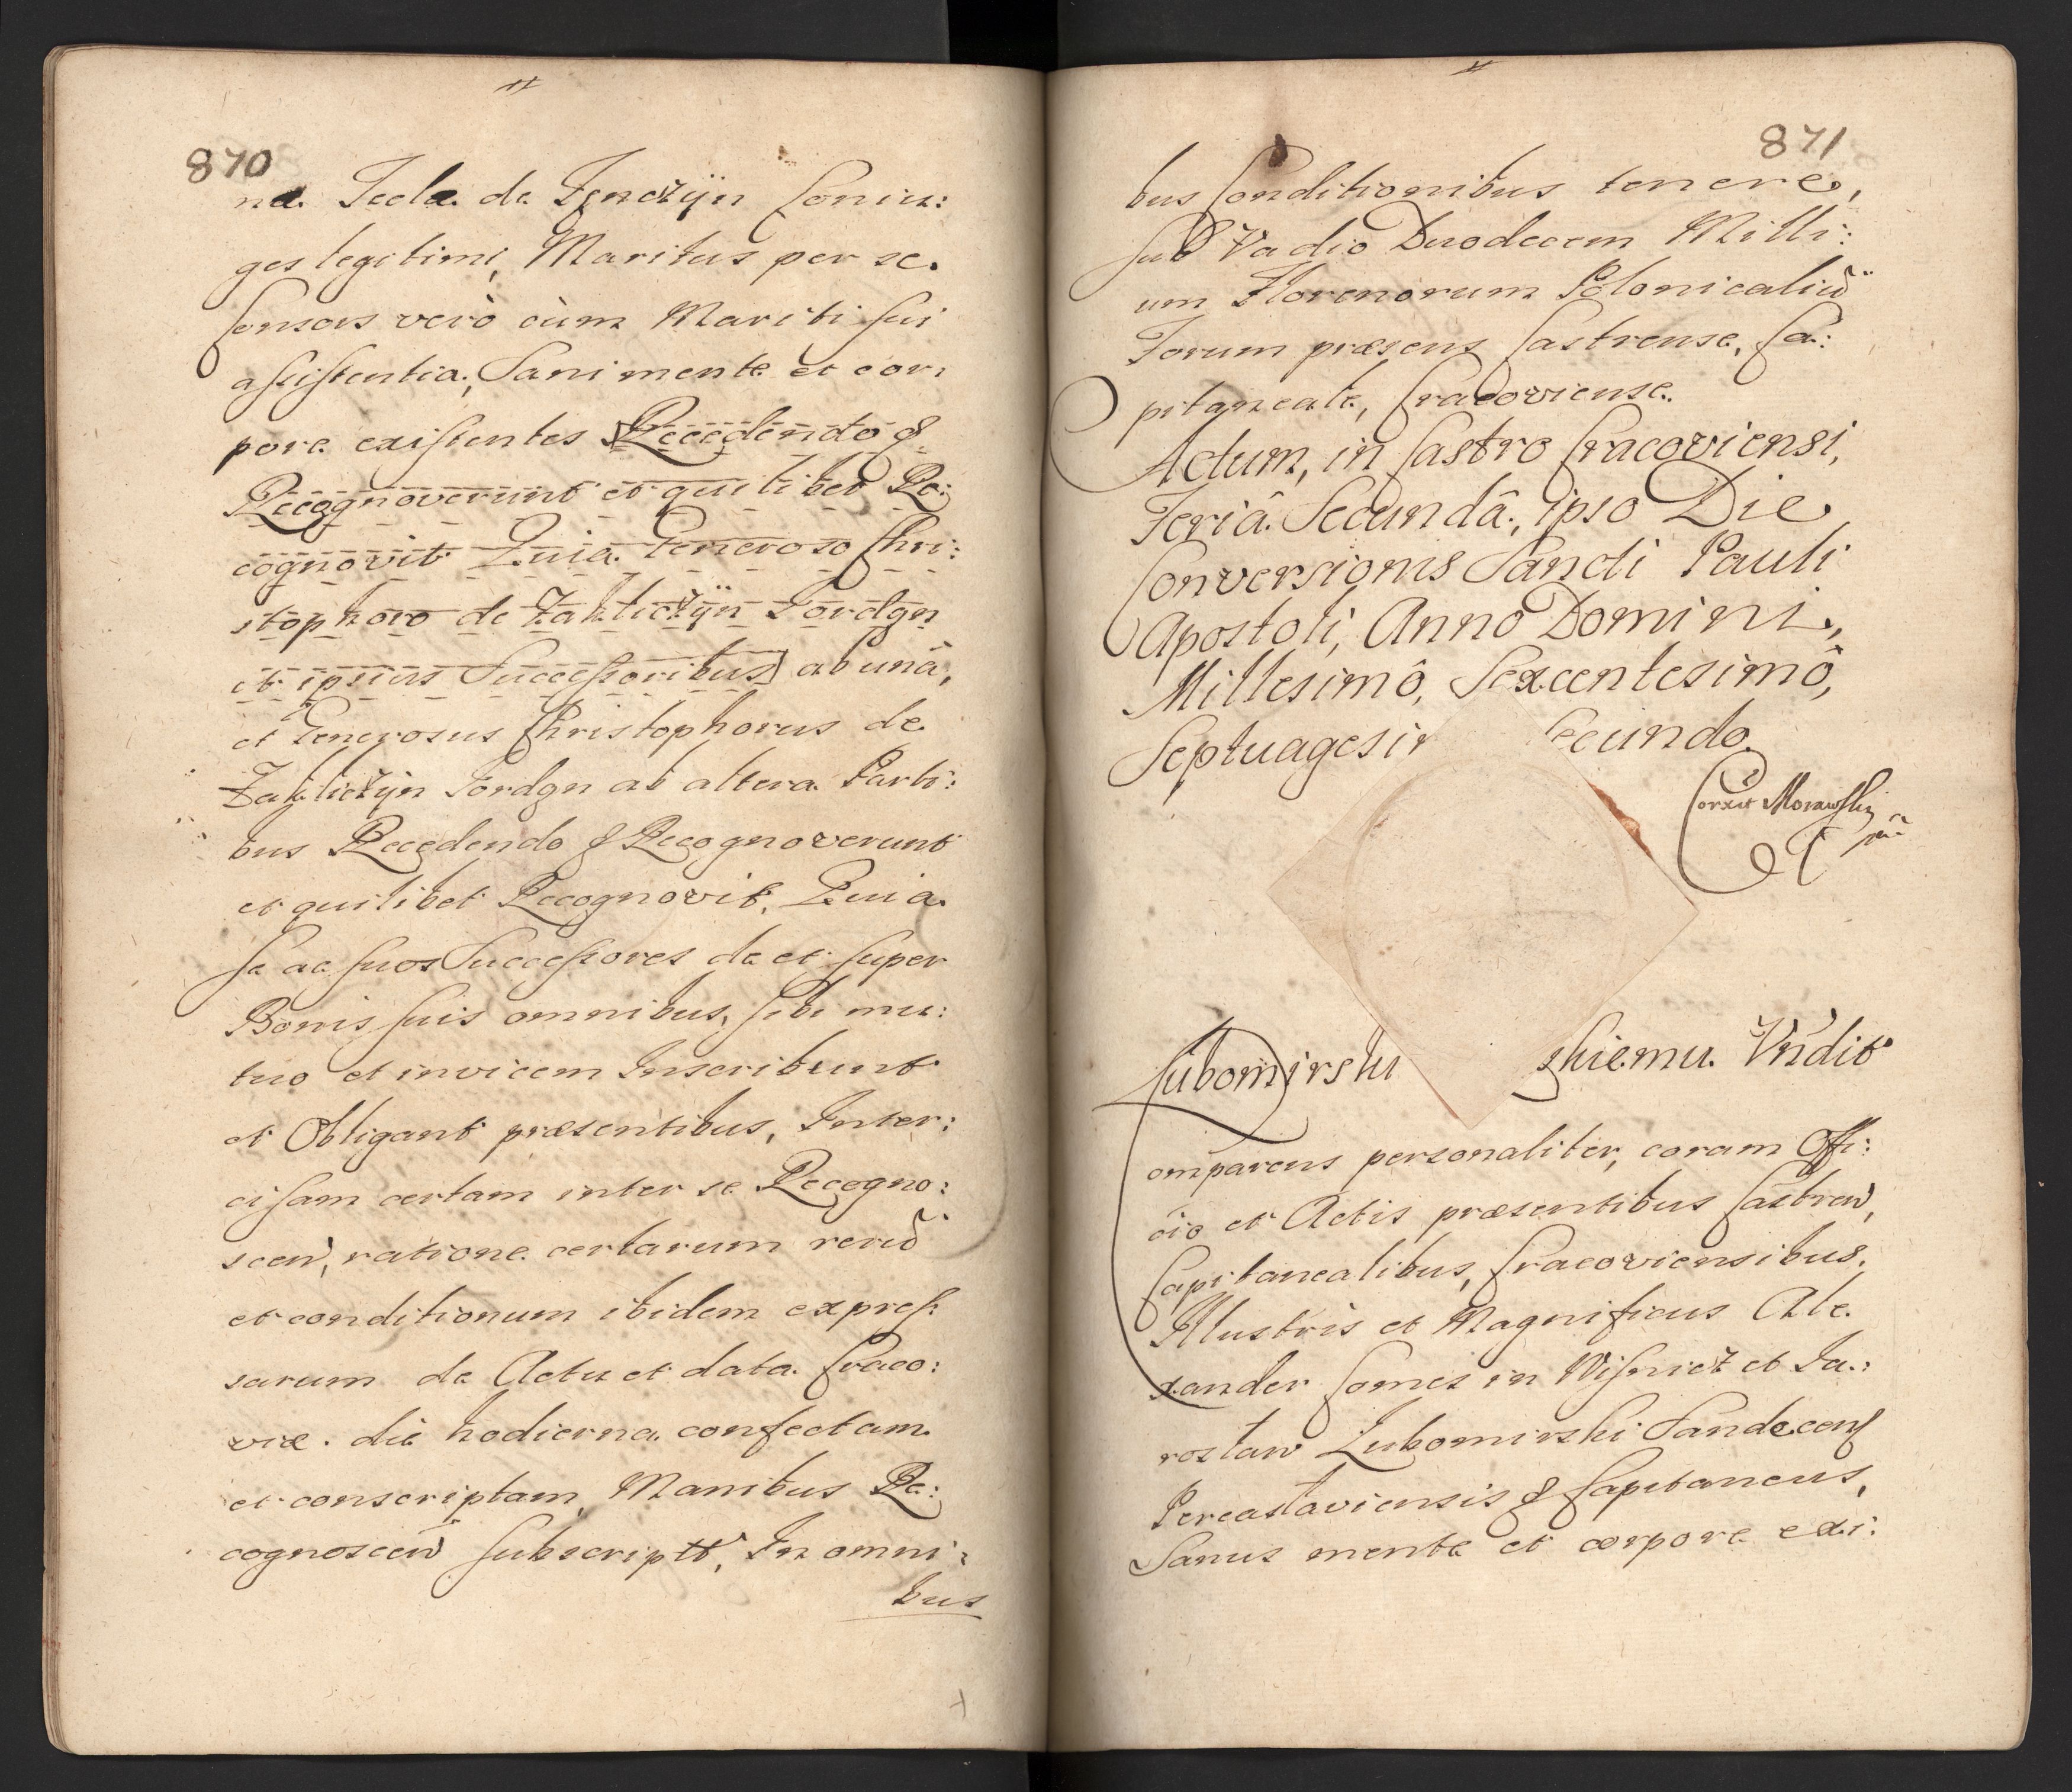 870
na Tecla de Tęnczÿn Coniu:
ges legitimi, Maritus per se
Consors verò cùm Mariti sui
assistentia, Sani mente et cor:
pore existentes Recedendo &
Recognoverunt et quilibet Re:
cognovit Quia Generoso Chri:
stophoro de Zakliczÿn Jordan
et ipsius Successoribus ab unâ,
et Generosus Christophorus de
Zakliczÿn Jordan ab altera Parti:
bus Recedendo & Recognoverunt
et quilibet Recognovit, Quia
se ac suos Successores de et super
Bonis suis omnibus, sibi mu:
tuo et invicem Inscribunt
et Obligant præsentibus, Inter:
cisam certam inter se Recogno:
scen, ratione certarum reru
et conditionum ibidem expres
sarum de Actu et data Craco:
viæ die hodierna confectam
et conscriptam, Manibus Re:
cognoscen subscriptt, In omni:
bus
871
bus Conditionibus tenere,
sub Vadio Duodecem Milli:
um Florenorum Polonicaliu
Forum præsens Castrense, Ca:
pitaneale, Cracoviense.
Actum, in Castro Cracoviensi,
Feriâ Secundâ, ipso Die
Conversionis Sancti Pauli
Apostoli, Anno Domini,
Millesimô, Sexcentesimô,
Septuagesi ecundo
Correxit Morawski
mp
Lubomirski skiemu Vndit
omparens personaliter, coram Offi:
cio et Actis præsentibus Castren,
Capitanealibus, Cracoviensibus,
Illustris et Magnificus Ale
xander Comes in Wisnicz et Ja:
roslaw Lubomirski Sandecens
Pereaslaviensis & Capitaneus,
Sanus mente et corpore exi: